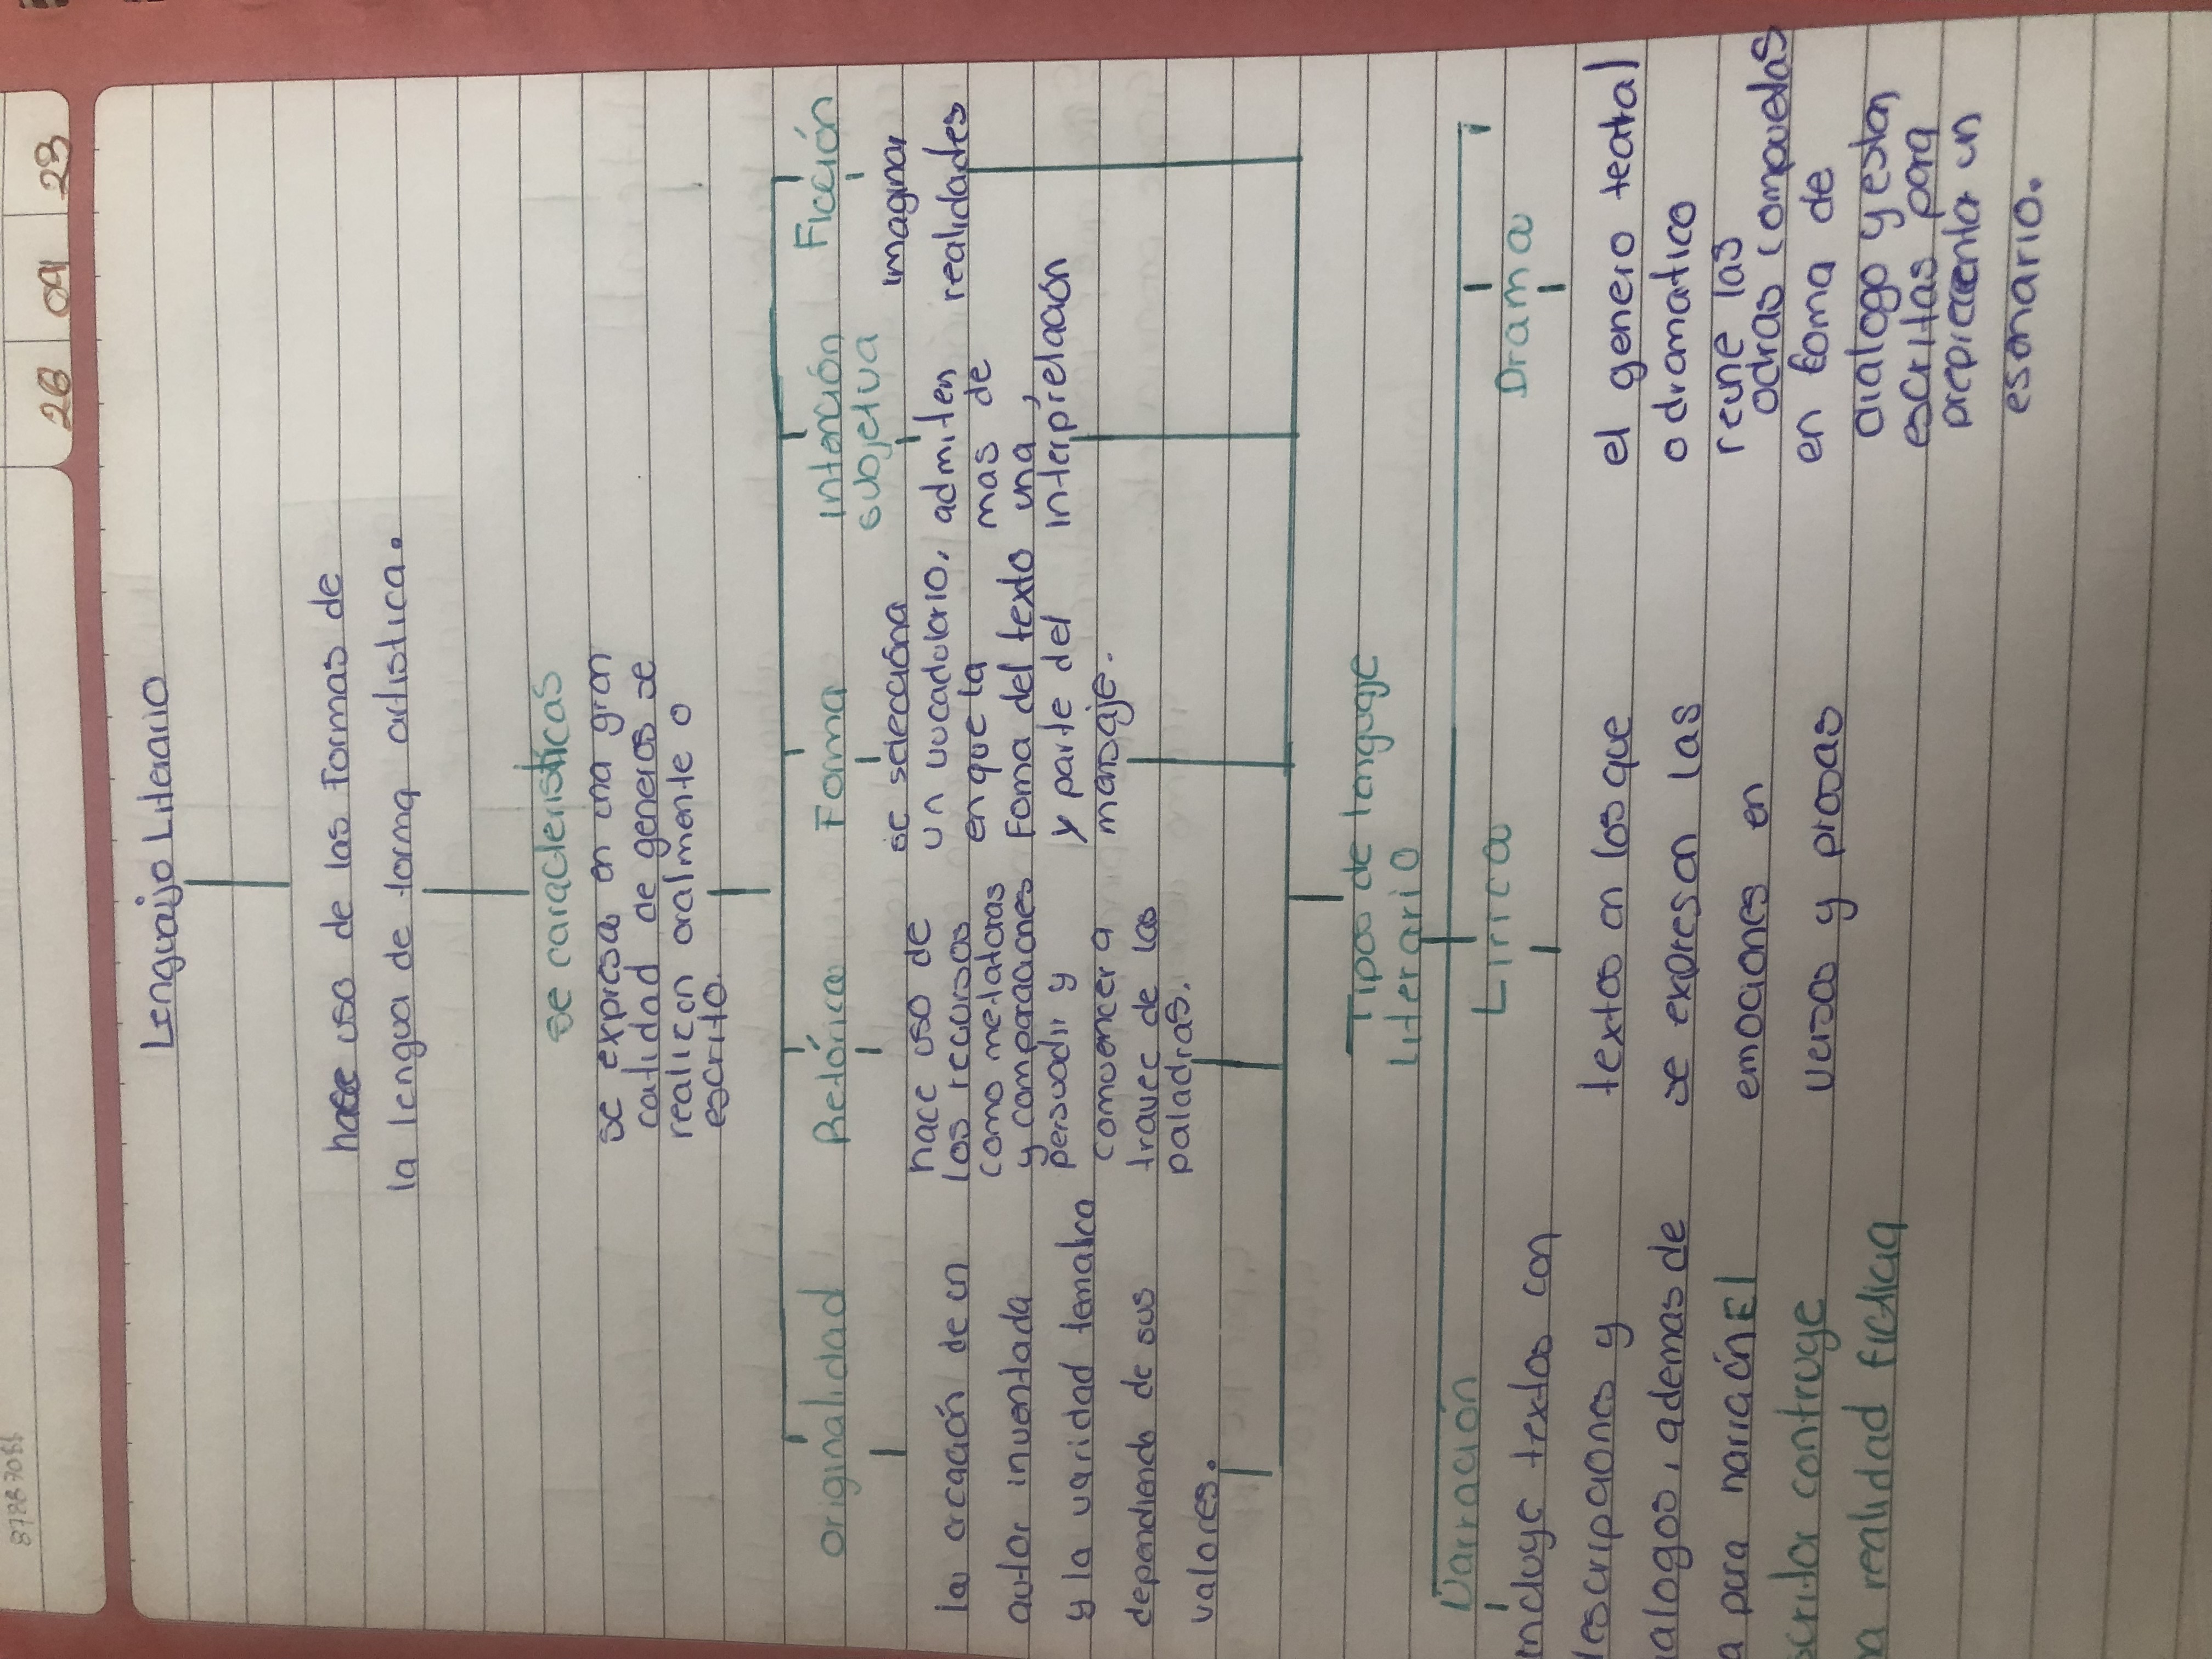 26 09 23
Lenguajo Literario
hase uso de las formas de
la lengua de forma artistica.
se caracteristicas
se expresa en una gran
catidad de generos se
realican oralmente o
escrito.
originalidad
la creación de un
autor inventada
y la varidad tematica
dependiendo de sus
valores.
Retórica
hace uso de
los recursos
como metaforas
y comparaciones
persuadir y
comvencer a
travec de las
palabras.
Forma
se selecióna
un vocabulario,
en que la
Foma del texto
y parte del
mansaje.
intención
subjetva
admiten
mas de
una,
interpretación
Ficción
imaginar
realidades
Tipos de languaje
Literario
Narración
incluye textos con
descripciones y
alogos, ademas de
a pura narración El
scritor contruye
a realidad ficticia
Lirica
textos en los que
se expresan las
emociones en
versos y prosas
Drama
el genero teatral
o dramatico
reune las
obras compuestas
en foma de
dialogo y estan
escritas para
precicenta un
esanario.